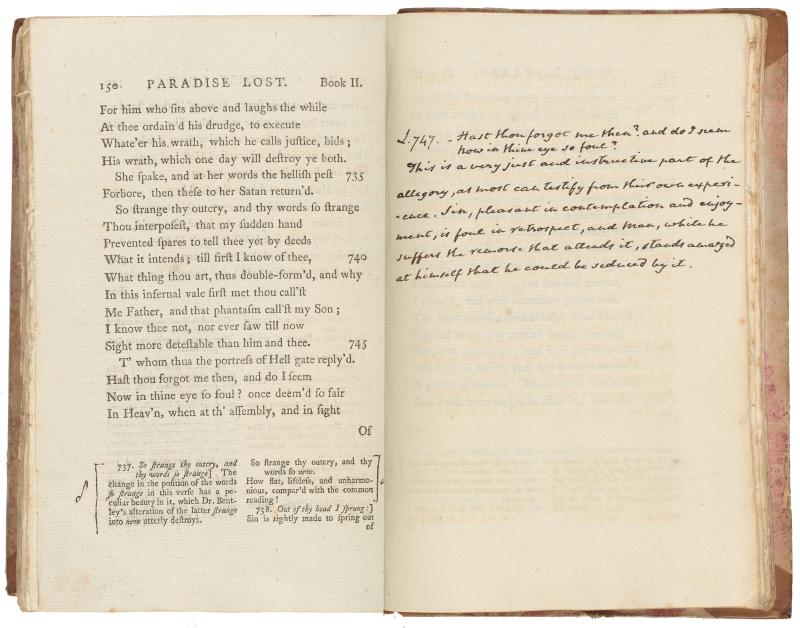 150 PARADISE LOST. Book II.
For him who ſits above and laughs the while
At thee ordain'd his drudge, to execute
Whate'er his wrath, which he calls juſtice, bids;
His wrath, which one day will deſtroy ye both.
She ſpake, and at her words the helliſh peſt 735
Forbore, then theſe to her Satan return'd.
So ſtrange thy outcry, and thy words ſo ſtrange
Thou interpoſeſt, that my ſudden hand
Prevented ſpares to tell thee yet by deeds
What it intends; till firſt I know of thee, 740
What thing thou art, thus double-form'd, and why
In this infernal vale firſt met thou call'ſt
Me Father, and that phantaſm call'ſt my Son;
I know thee not, nor ever ſaw till now
Sight more deteſtable than him and thee. 745
T' whom thus the portreſs of Hell gate reply'd.
Haſt thou forgot me then, and do I ſeem
Now in thine eye ſo foul? once deem'd ſo fair
In Heav'n, when at th' aſſembly, and in ſight
Of
737. So ſtrange thy outcry, and
thy words ſo ſtrange] The
change in the poſition of the words
ſo ſtrange in this verſe has a pe-
culiar beauty in it, which Dr. Bent-
ley's alteration of the latter ſtrange
into new utterly deſtroys.
So ſtrange thy outcry, and thy
words ſo new.
How flat, lifeleſs, and unharmo-
nious, compar'd with the common
reading!
758. Out of thy head I ſprung:]
Sin is rightly made to ſpring out
of
L.747. - Hast thou forgot me then? and do I seem
now in thine eye so foul?
This is a very just and instructive part of the
allegory, as most can testify from their own experi-
-ence. Sin, pleasant in contemplation and enjoy-
ment, is foul in retrospect, and Man, while he
suffers the remorse that attends it, stands amazed
at himself that he could be seduced by it.